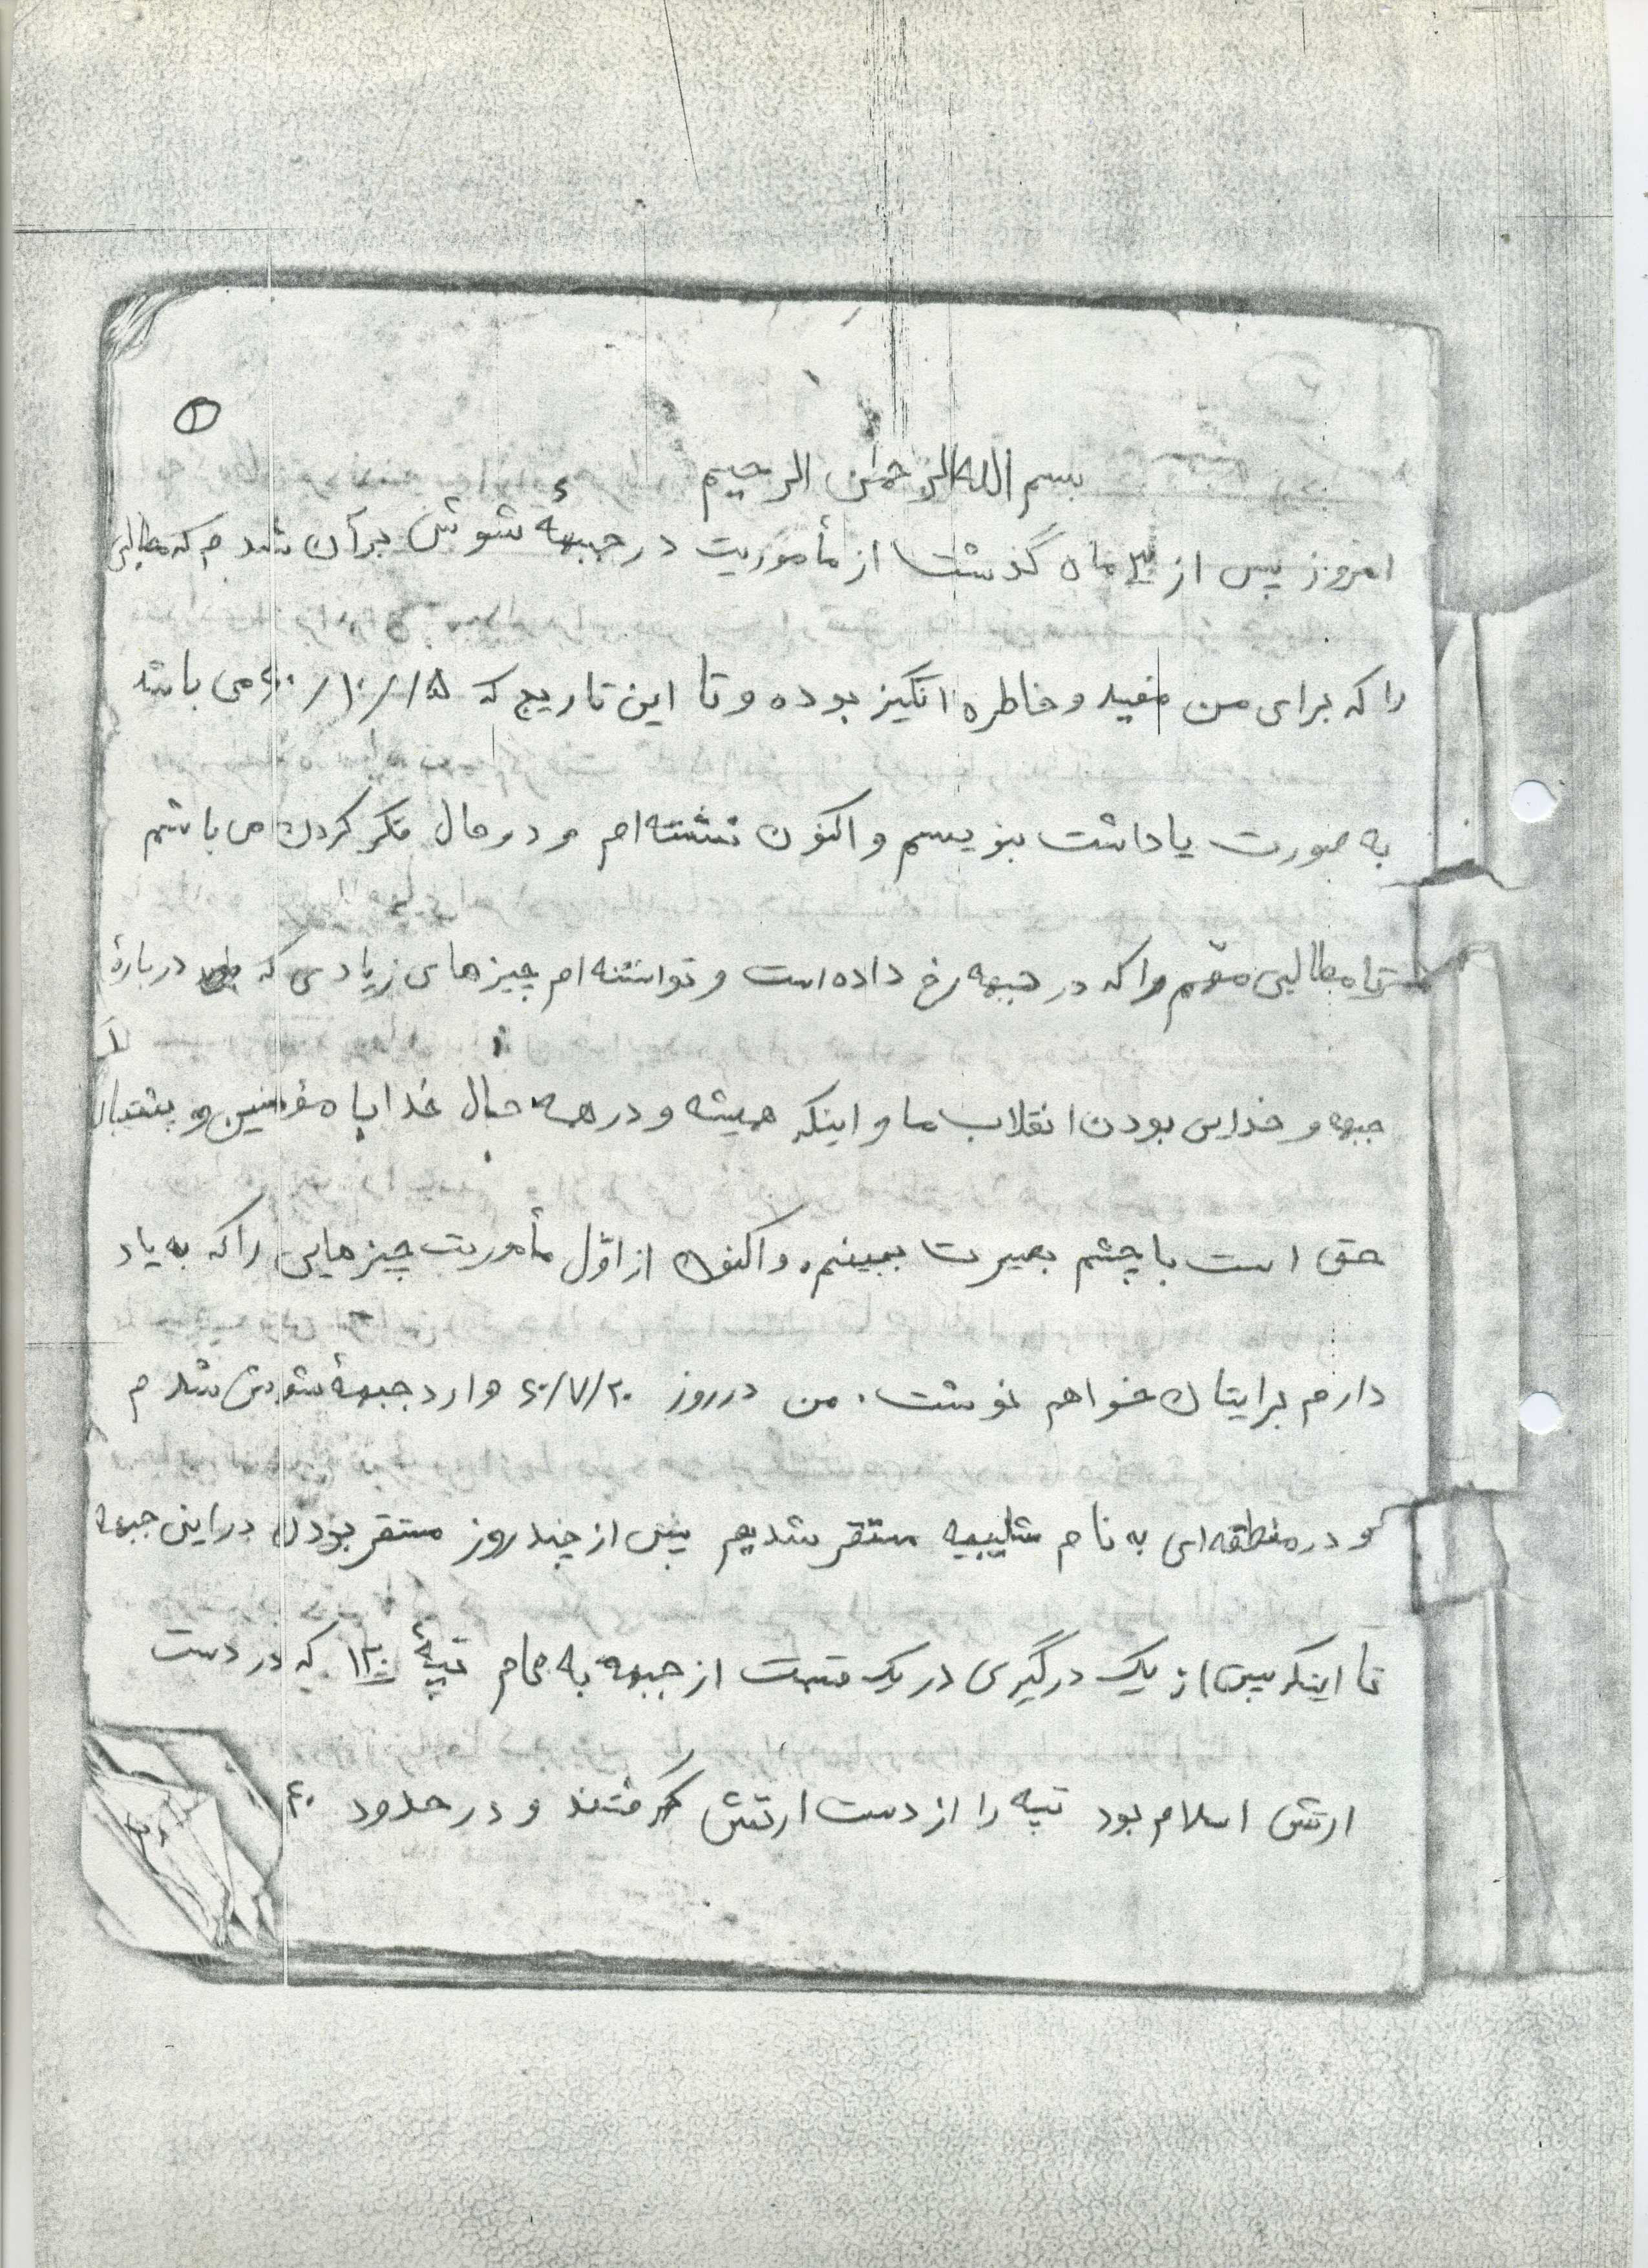 ①
بسم الله الرحمن الرحیم
امروز پس از ۳ ماه گذشت از مأموریت در جبههٔ شوش برآن شدم که مطالبی
را که برای من مفید و خاطره انگیز بوده و تا این تاریخ که ۶۰/۱۰/۱۵ می باشد
به صورت یاداشت بنویسم و اکنون نشسته ام و در حال فکر کردن می باشم
تا مطالبی مهم را که در جبهه رخ داده است و توانسته ام چیزهای زیادی که دربارهٔ
جبهه و خدایی بودن انقلاب ما و اینکه همیشه و در همه حال خدا با مؤمنین و پشتیبان
حق است با چشم بصیرت ببینم. و اکنون از اوّل مأموریت چیزهایی را که به یاد
دارم برایتان خواهم نوشت. من در روز ۶۰/۷/۲۰ وارد جبههٔ شوش شدم
و در منطقه ای به نام شلیبیه مستقر شدیم پس از چند روز مستقر بودن در این جبهه
تا اینکه پس از یک درگیری در یک قسمت از جبهه به نام تپهٔ ۱۲۰ که در دست
ارتش اسلام بود تپه را از دست ارتش گرفتند و در حدود ۴۰